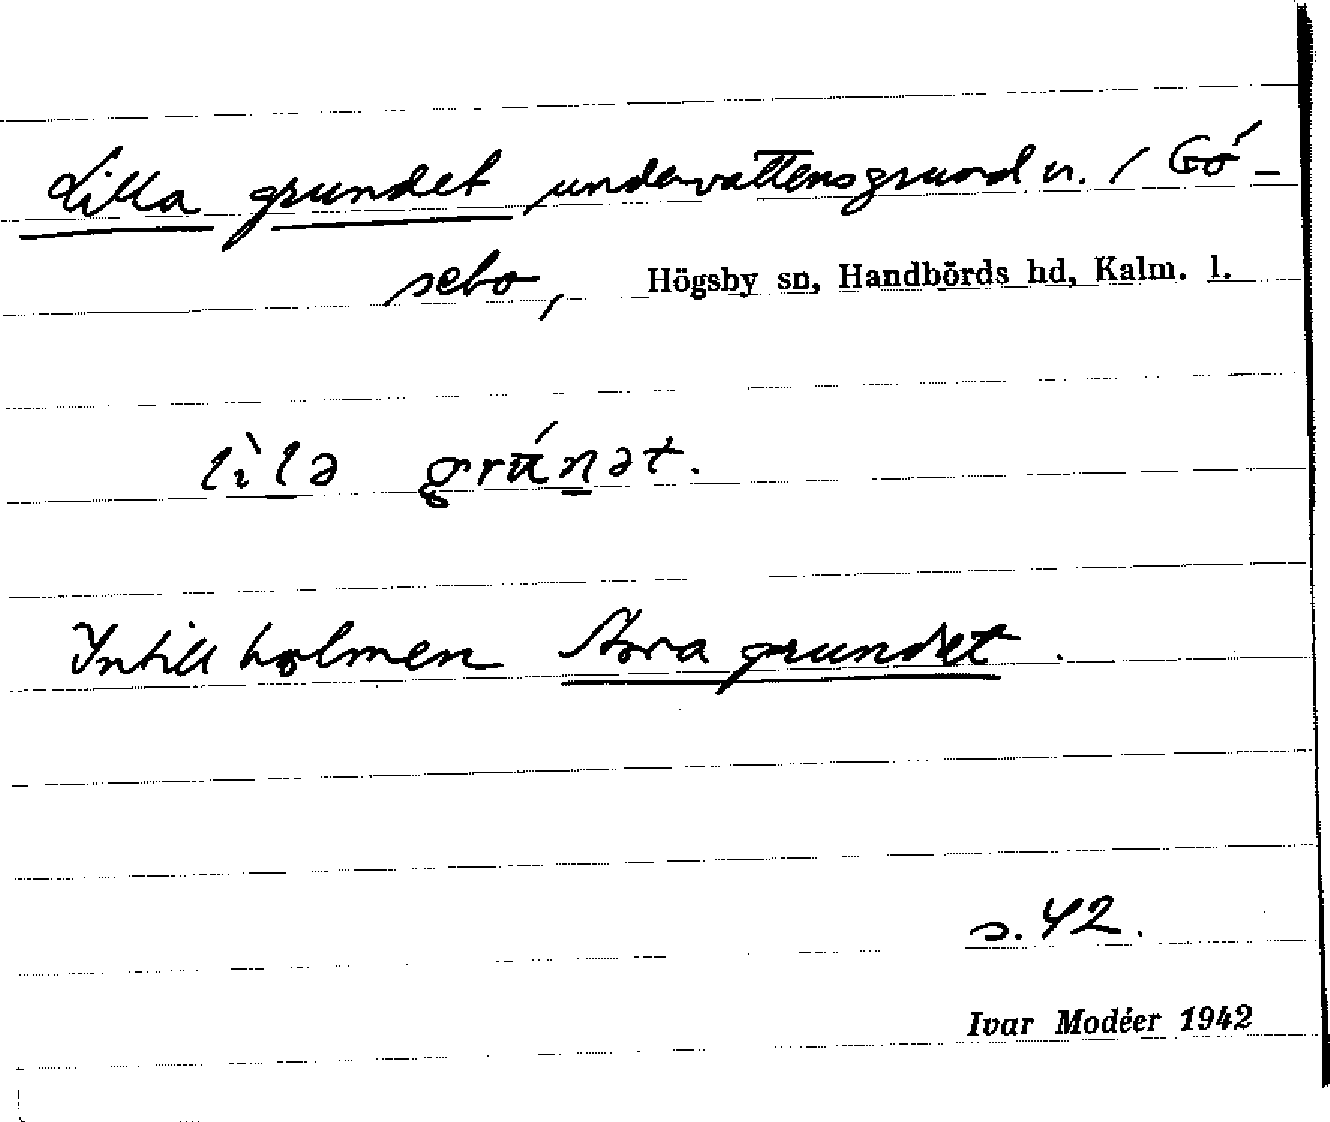 Lilla grundet, undervattensgrund n. / Gó-
sebo, Högsby sn, Handbörds hd, Kalm. l.
lìlə grúnət.
Intill holmen Stora grundet.
s. 42.
Ivar Modéer 1942